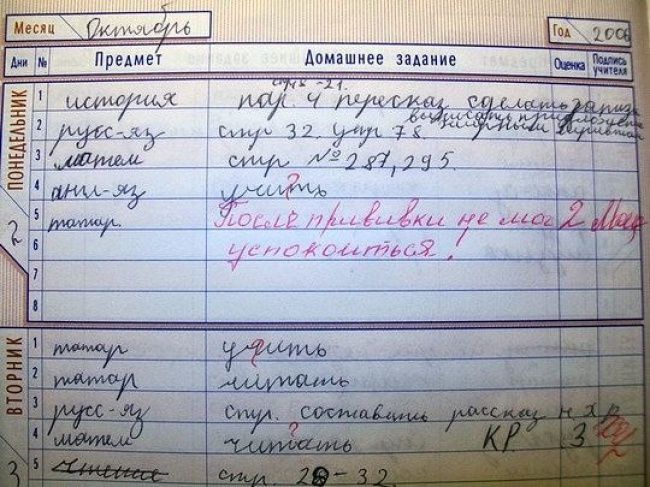 Месяц Октябрь Год 2006
Дни № Предмет Домашнее задание Оценка Подпись учителя
ПОНЕДЕЛЬНИК 2
стр 18-21.
1 история пар. 4 пересказ сделать
2 русс-яз стр 32. упр 78.
3 матем стр №287, 295.
4 англ-яз учить ?
5 татар. После прививки не мог 2
6 успокоиться!
7
8
ВТОРНИК 3
1 татар учить
2 татар читать
3 русс-яз стр. составить рассказ
4 матем читать ? КР 3
5 чтение стр. 28-32